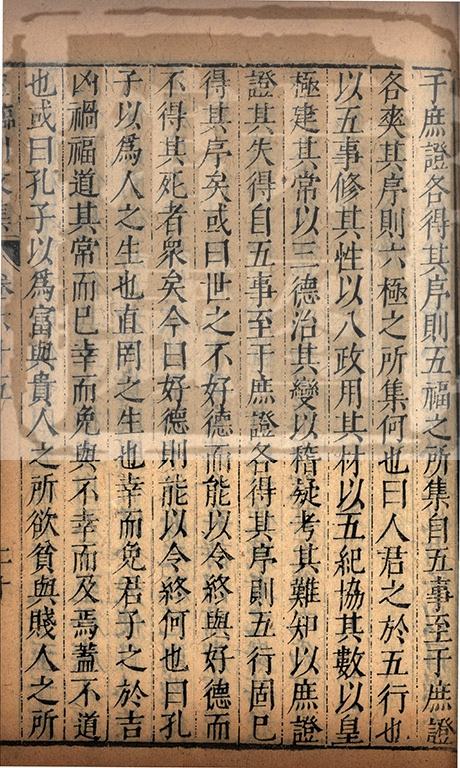 于庶證各得其序則五福之所集自五事至于庶證
各爽其序則六極之所集何也曰人君之於五行也
以五事修其性以八政用其材以五紀協其數以皇
極建其常以三德治其變以稽疑考其難知以庶證
證其失得自五事至于庶證各得其序則五行固已
得其序矣或曰世之不好德而能以令終與好德而
不得其死者衆矣今曰好德則能以令終何也曰孔
子以爲人之生也直罔之生也幸而免君子之於吉
凶禍福道其常而已幸而免與不幸而及焉蓋不道
也或曰孔子以爲富與貴人之所欲貧與賤人之所
臨川文集
卷六十五